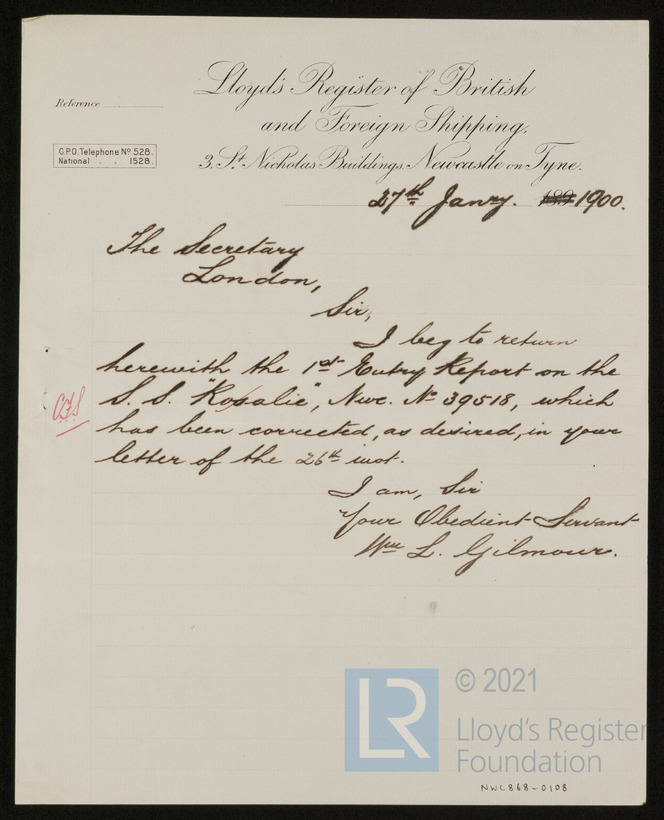 Lloyd's Register of British
and Foreign Shipping,
Reference
G.P.O. Telephone Nº 528.
National . . 1528.
3, St. Nicholas Buildings, Newcastle on Tyne.
27th Janry. 189 1900.
The Secretary
London,
Sir,
I beg to return
herewith the 1st Entry Report on the
S. S. "Rosalie", Nwc. Nº 39518, which
has been corrected, as desired, in your
letter of the 26th inst.
I am, Sir
Your Obedient Servant
Wm L. Gilmour.
LR
© 2021
Lloyd's Register
Foundation
NWC868-0108